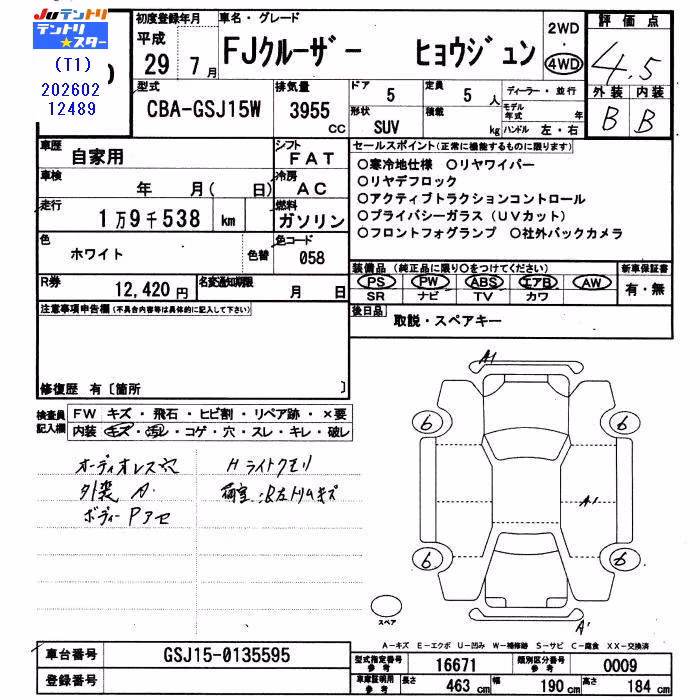 JUテントリ
テントリ
★スター
(T1)
202602
12489
初度登録年月
平成
29年 7月
車名・グレード
FJクルーザー ヒョウジュン
2WD
・
4WD
評価点
4.5
外装 内装
B B
型式
CBA-GSJ15W
排気量
3955
CC
ドア
5
定員
5
人
形状
SUV
積載
kg
ディーラー・並行
モデル年式 年
ハンドル 左・右
車歴
自家用
シフト
FAT
車検
年 月( 日)
冷房
AC
走行
1万9千538 km
燃料
ガソリン
色
ホワイト
色替
色コード
058
R券
12,420円
名変通知期限
月 日
セールスポイント(正常に機能するものに限ります)
○寒冷地仕様 ○リヤワイパー
○リヤデフロック
○アクティブトラクションコントロール
○プライバシーガラス(UVカット)
○フロントフォグランプ ○社外バックカメラ
装備品(純正品に限り○をつけてください)
PS PW ABS エアB AW
SR ナビ TV カワ
新車保証書
有・無
後日品
取説・スペアキー
注意事項申告欄(不具合内容等は具体的に記入して下さい)
修復歴 有〔箇所 〕
検査員記入欄
FW キズ・飛石・ヒビ割・リペア跡・×要
内装 キズ・汚レ・コゲ・穴・スレ・キレ・破レ
オーディオレス
外装 A.
ボディーPアセ
Hライトクモリ
荷室、B左トリムキズ
A1
6 6
A1
6 6
スペア
A'
A－キズ E－エクボ U－凹み W－補修跡 S－サビ C－腐食 XX－交換済
車台番号
GSJ15-0135595
登録番号
型式指定番号
参考
16671
類別区分番号
参考
0009
車庫証明用
参考
長さ 463 cm 幅 190 cm 高さ 184 cm